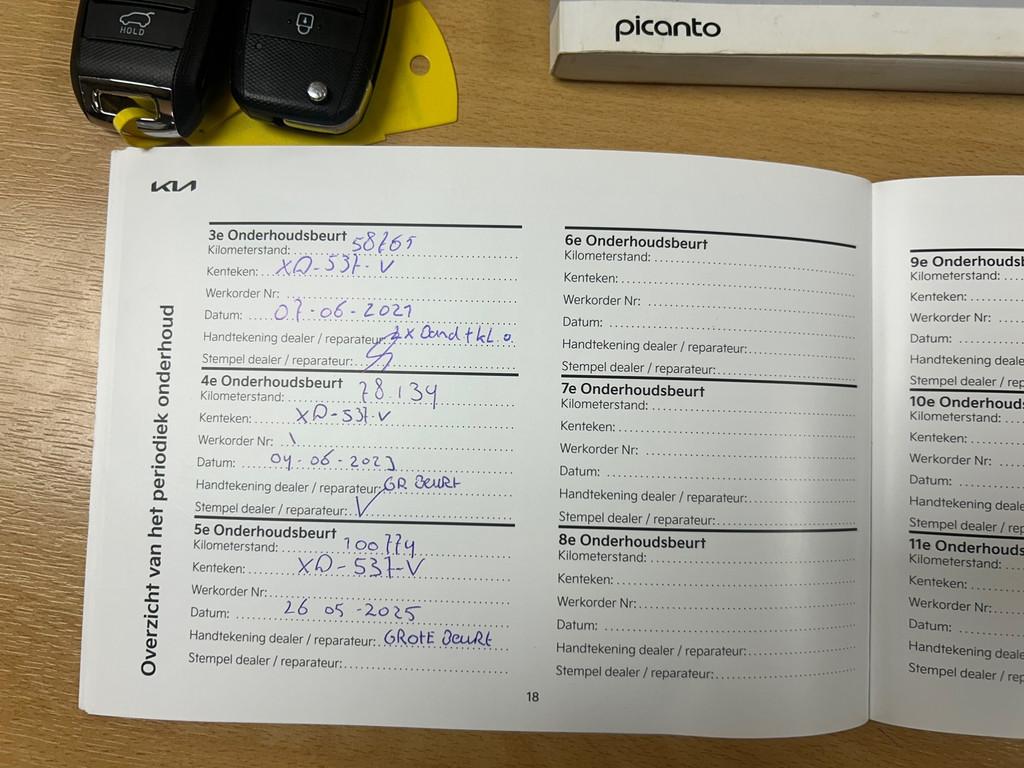 HOLD
picanto
KIA
Overzicht van het periodiek onderhoud
3e Onderhoudsbeurt
Kilometerstand: 58765
Kenteken: XD-537-V
Werkorder Nr:
Datum: 07-06-2021
Handtekening dealer / reparateur: 2x Band + kl. o.
Stempel dealer / reparateur:
4e Onderhoudsbeurt
Kilometerstand: 78.134
Kenteken: XD-537-V
Werkorder Nr: \
Datum: 04-06-2023
Handtekening dealer / reparateur: GR Beurt
Stempel dealer / reparateur:
5e Onderhoudsbeurt
Kilometerstand: 100774
Kenteken: XD-537-V
Werkorder Nr:
Datum: 26 05-2025
Handtekening dealer / reparateur: GROTE Beurt
Stempel dealer / reparateur:
6e Onderhoudsbeurt
Kilometerstand:
Kenteken:
Werkorder Nr:
Datum:
Handtekening dealer / reparateur:
Stempel dealer / reparateur:
7e Onderhoudsbeurt
Kilometerstand:
Kenteken:
Werkorder Nr:
Datum:
Handtekening dealer / reparateur:
Stempel dealer / reparateur:
8e Onderhoudsbeurt
Kilometerstand:
Kenteken:
Werkorder Nr:
Datum:
Handtekening dealer / reparateur:
Stempel dealer / reparateur:
18
9e Onderhoudsb
Kilometerstand:
Kenteken:
Werkorder Nr:
Datum:
Handtekening deale
Stempel dealer / rep
10e Onderhouds
Kilometerstand:
Kenteken:
Werkorder Nr:
Datum:
Handtekening deale
Stempel dealer / rep
11e Onderhouds
Kilometerstand:
Kenteken:
Werkorder Nr:
Datum:
Handtekening deale
Stempel dealer / rep